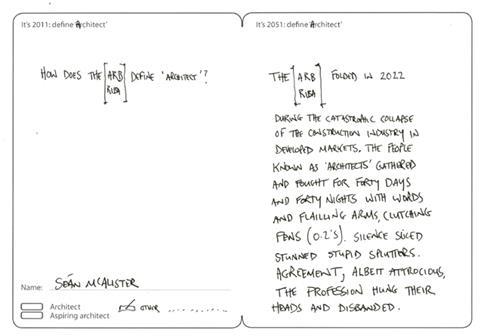 It's 2011: define 'Architect'
HOW DOES THE [ARB RIBA] DEFINE 'ARCHITECT'?
Name: SEÁN MCALISTER
Architect
Aspiring architect
OTHER ...........
It's 2051: define 'Architect'
THE [ARB RIBA] FOLDED IN 2022
DURING THE CATASTROPHIC COLLAPSE
OF THE CONSTRUCTION INDUSTRY IN
DEVELOPED MARKETS. THE PEOPLE
KNOWN AS 'ARCHITECTS' GATHERED
AND FOUGHT FOR FORTY DAYS
AND FORTY NIGHTS WITH WORDS
AND FLAILLING ARMS, CLUTCHING
PENS (0.2'S). SILENCE SLICED
STUNNED STUPID SPLUTTERS.
AGREEMENT, ALBEIT ATTROCIOUS,
THE PROFESSION HUNG THEIR
HEADS AND DISBANDED.